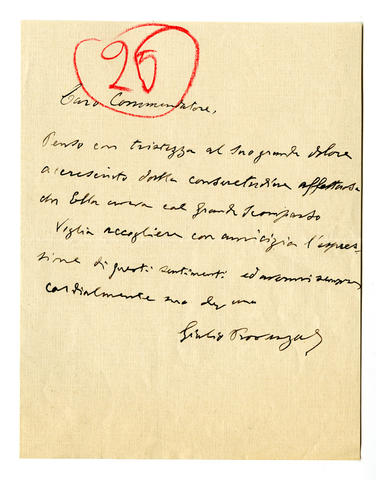 25
Caro Commendatore,
Penso con tristezza al Suo grande dolore
accresciuto dalla consuetudine affettuosa
che Ella aveva col grande Scomparso
Voglia accogliere con amicizia l'espres-
sione di questi sentimenti ed avermi sempre
cordialmente suo
Giulio Provenzal